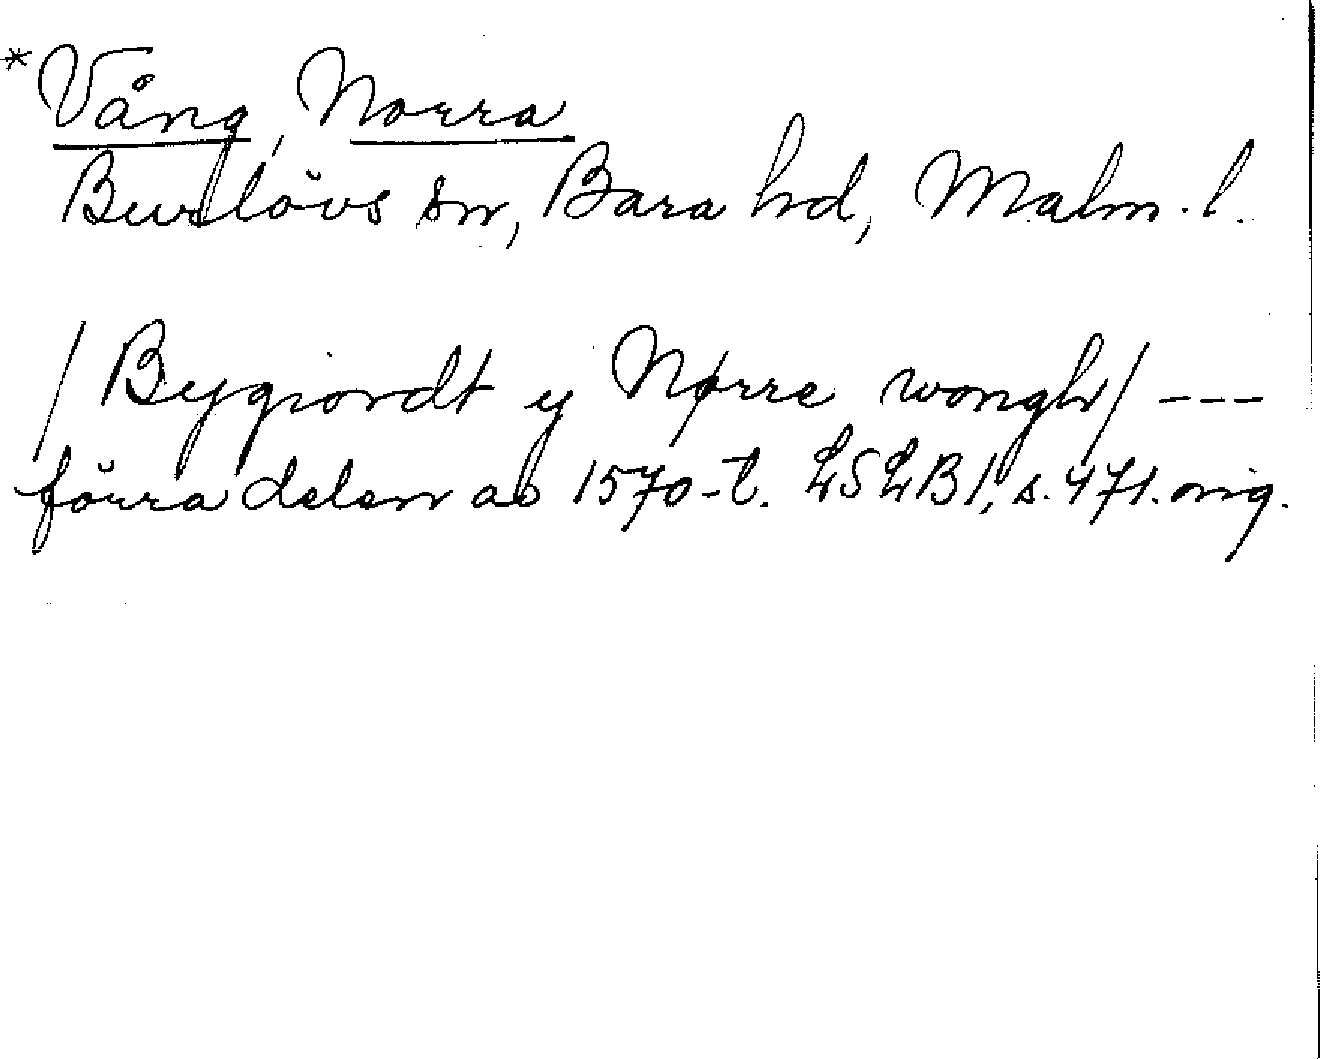 *Vång, Norra
Burlövs sn, Bara hd, Malm. l.
/Bygiordt y Nørre wongh/ ---
förra delen av 1570-t. LSLB1, s. 471. orig.